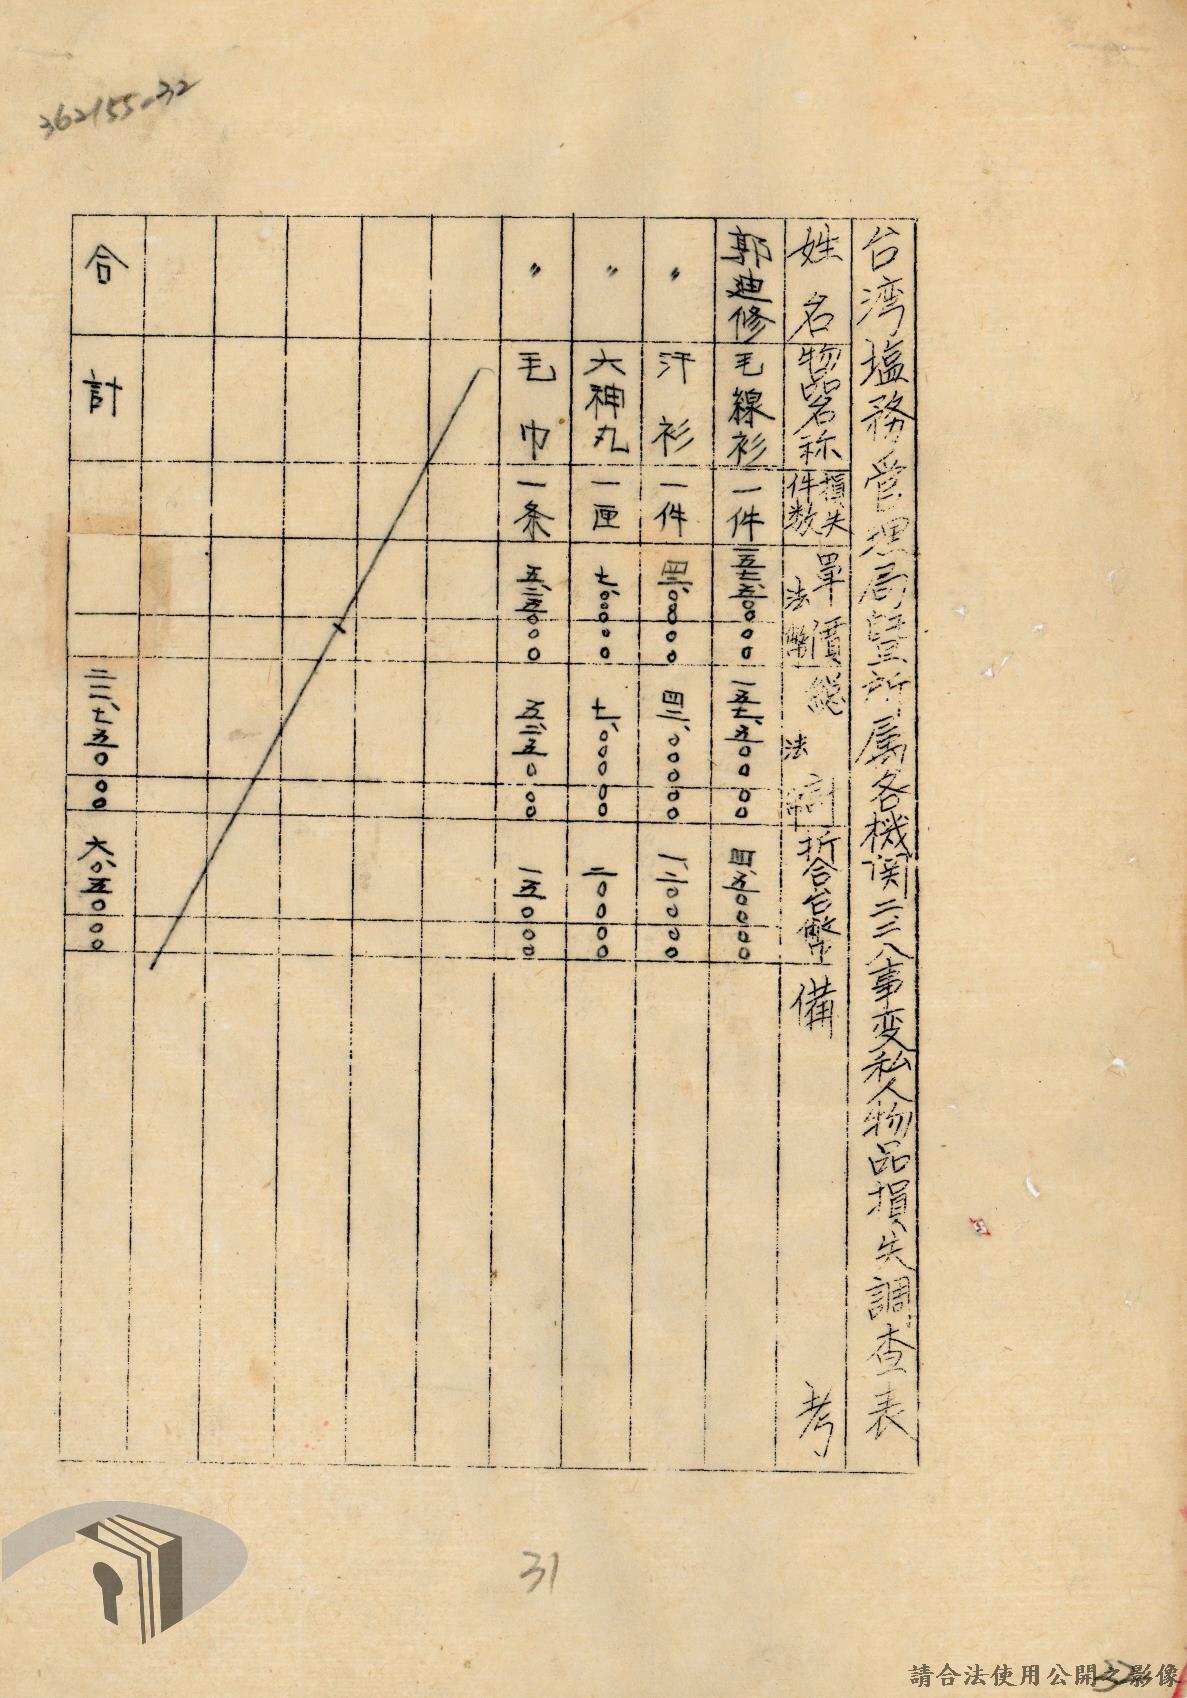 362155-32
台湾塩務管理局暨所属各機関二二八事变私人物品損失調查表
姓名 物品名称 損失件数 單價法幣 總價法幣 折合台幣 備考
郭迪修 毛線衫 一件 一五七、五〇〇〇〇 一五七、五〇〇〇〇 四、五〇〇〇〇
〃 汗衫 一件 四二、〇〇〇〇〇 四二、〇〇〇〇〇 一、二〇〇〇〇
〃 六神丸 一匣 七、〇〇〇〇〇 七、〇〇〇〇〇 二〇〇〇〇
〃 毛巾 一条 五、二五〇〇〇 五、二五〇〇〇 一五〇〇〇
合計 二一一、七五〇〇〇 六、〇五〇〇〇
31
請合法使用公開之影像